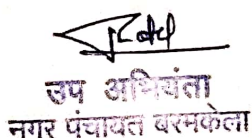 उप अभियंता
नगर पंचायत बरमकेला